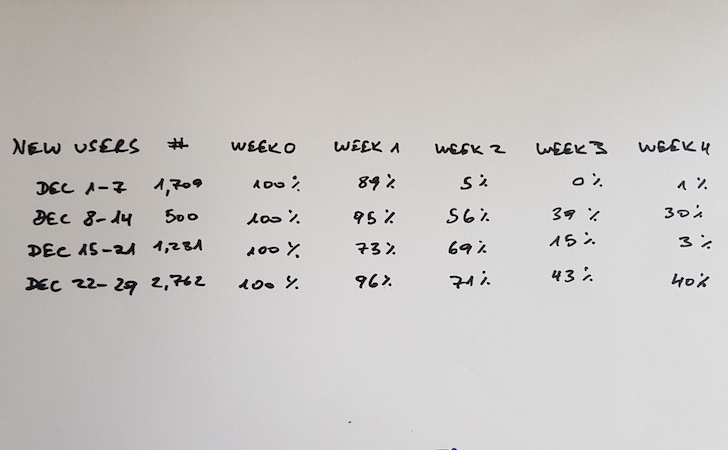 NEW USERS # WEEK 0 WEEK 1 WEEK 2 WEEK 3 WEEK 4
DEC 1-7 1,709 100% 89% 5% 0% 1%
DEC 8-14 500 100% 95% 56% 39% 30%
DEC 15-21 1,231 100% 73% 69% 15% 3%
DEC 22-29 2,762 100% 96% 71% 43% 40%